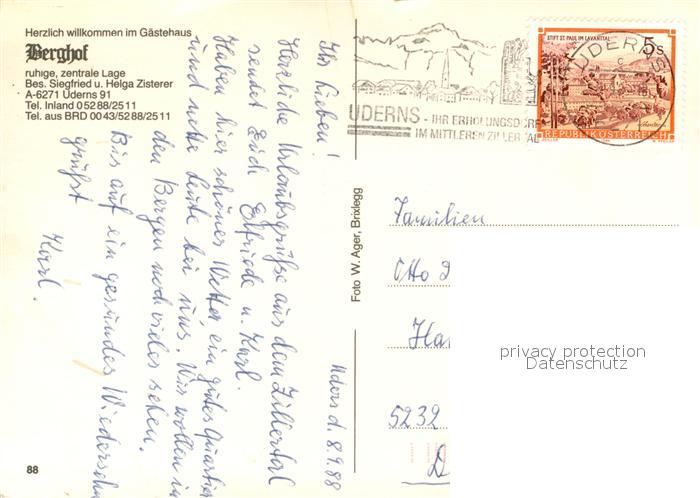 Herzlich willkommen im Gästehaus
Berghof
ruhige, zentrale Lage
Bes. Siegfried u. Helga Zisterer
A-6271 Uderns 91
Tel. Inland 0 52 88/25 11
Tel. aus BRD 00 43/52 88/25 11
UDERNS - IHR ERHOLUNGSDORF
IM MITTLEREN ZILLERTAL
STIFT ST. PAUL IM LAVANTTAL
5 S
REPUBLIK ÖSTERREICH
UDERNS
Uderns d. 8.9.88
Ihr Lieben!
Herzliche Urlaubsgrüße aus dem Zillertal
sendet Euch Elfriede u. Karl.
Haben hier schönes Wetter, ein gutes Quartier
und nette Leute bei uns. Wir wollen in
den Bergen noch vieles sehen.
Bis auf ein gesundes Wiedersehn
grüßt
Karl.
Foto W. Ager, Brixlegg
Familien
Otto
5232
privacy protection
Datenschutz
88